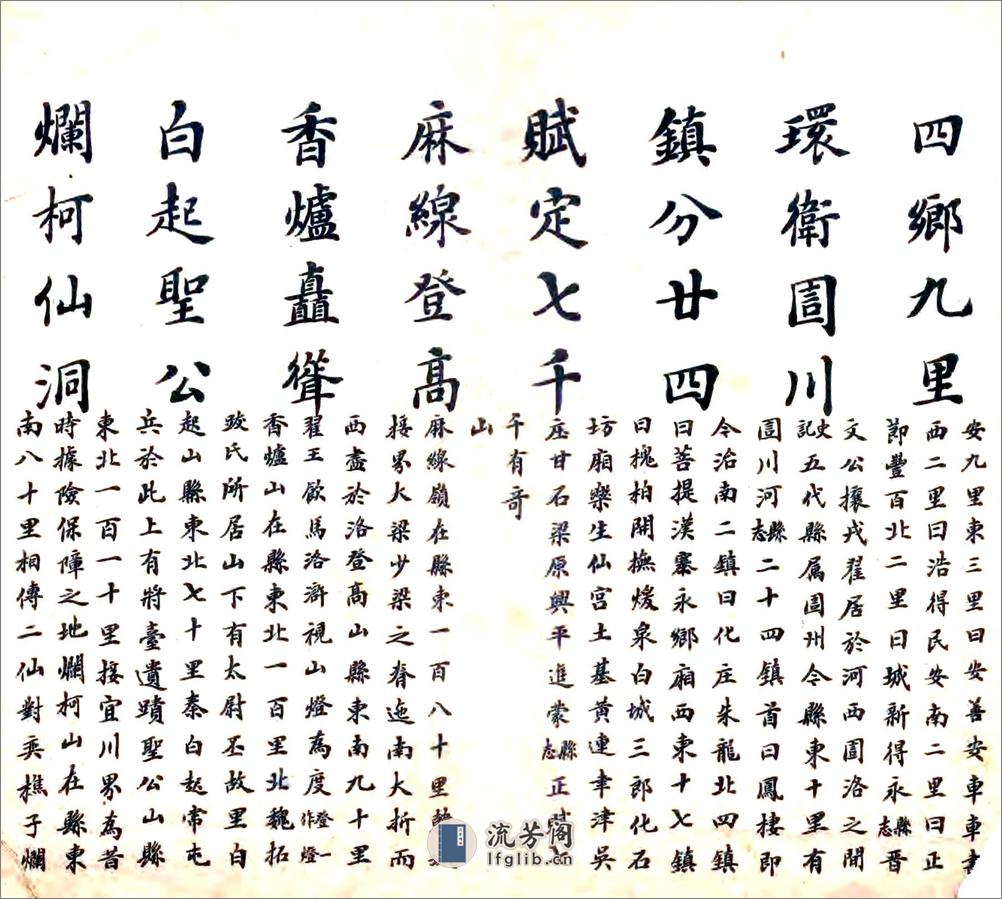 四鄉九里
環衛圁川
鎮分廿四
賦定七千
安九里東三里曰安善安車車書
西二里曰浩得民安南二里曰正
節豐百北二里曰城新得永縣志晉
文公攘戎翟居於河西圁洛之間
史記五代縣属圁州令縣東十里有
圁川河縣志二十四鎮首曰鳳棲即
令治南二鎮曰化庄朱龍北四鎮
曰菩提漢寨永鄉廂西東十七鎮
曰槐柏開撫煖泉白城三郎化石
坊廂樂生仙宮土基黃連聿津吳
庄甘石梁原興平進蒙縣志正七
千有奇
山
麻線登高
香爐矗聳
白起聖公
爛柯仙洞
麻線嶺在縣東一百八十里
接界大梁少梁之脊迤南大折而
西盡於洛登高山縣東南九十里
翟王飲馬洛滸視山燈為度登一作燈
香爐山在縣東北一百里北魏拓
跋氏所居山下有太尉丕故里白
起山縣東北七十里秦白起常屯
兵於此上有將臺遺蹟聖公山縣
東北一百一十里接宜川界為昔
時據險保障之地爛柯山在縣東
南八十里相傳二仙對奕樵子爛
流芳阁
lfglib.cn